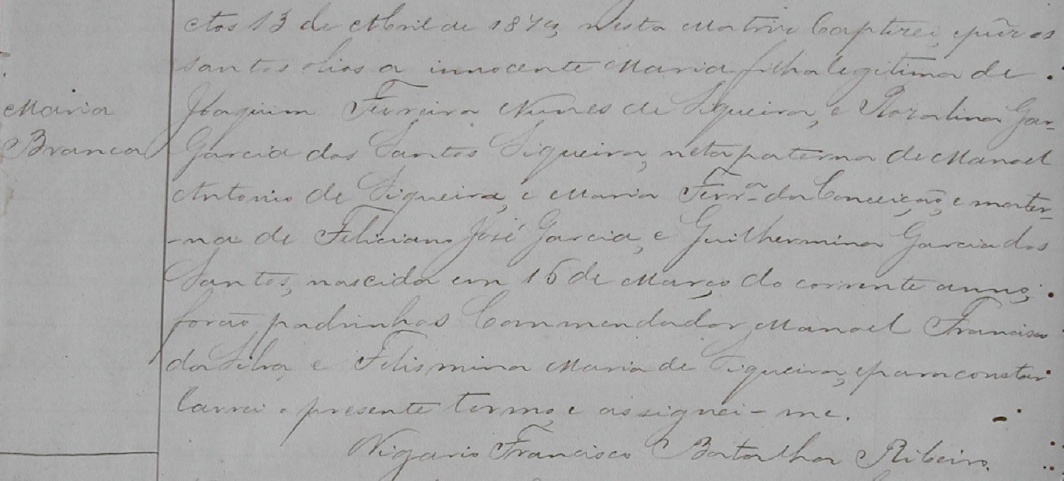 Aos 13 de Abril de 1874, nesta Matriz baptizei, e puz os
santos olios a innocente Maria filha legitima de
Maria
Joaquim Ferreira Nunes de Siqueira, e Rozalina Gar-
Branca
Garcia dos Santos Siqueira, neta paterna de Manoel
Antonio de Siqueira, e Maria Ferrª da Conceição, e mater-
-na de Feliciano José Garcia, e Guilhermina Garcia dos
Santos, nascida em 16 de Março do corrente anno;
forão padrinhos Commendador Manoel Francisco
da Silva, e Felismina Maria de Siqueira, e para constar
lavrei o presente termo, e assignei-me.
Vigario Francisco Batalha Ribeiro.